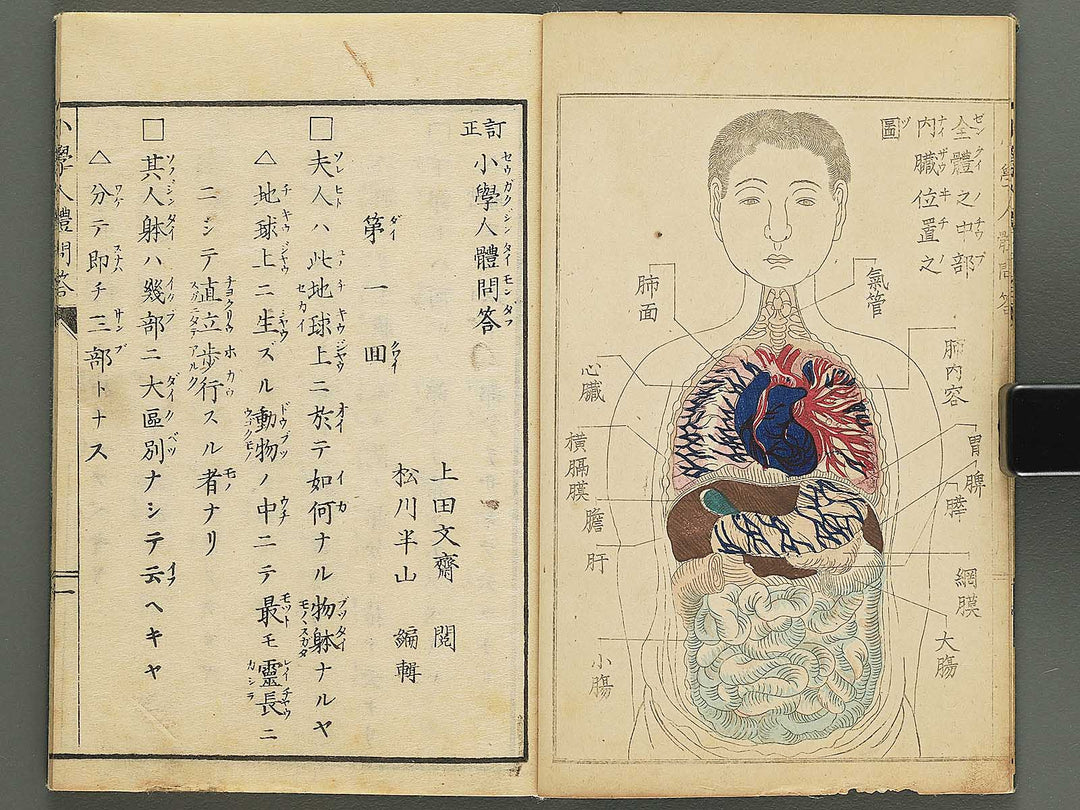 全體之中部
內臟位置之
圖
氣管
肺面
肺內容
心臟
胃
脾
膵
橫膈膜
膽
肝
網膜
大腸
小腸
訂正 小學人體問答
第一回
上田文齋 閲
松川半山 編輯
□夫人ハ此地球上ニ於テ如何ナル物躰ナルヤ
△地球上ニ生ズル動物ノ中ニテ最モ靈長ニ
ニシテ直立歩行スル者ナリ
□其人躰ハ幾部ニ大區別ナシテ云ヘキヤ
△分テ即チ三部トナス
小學人體問答
一